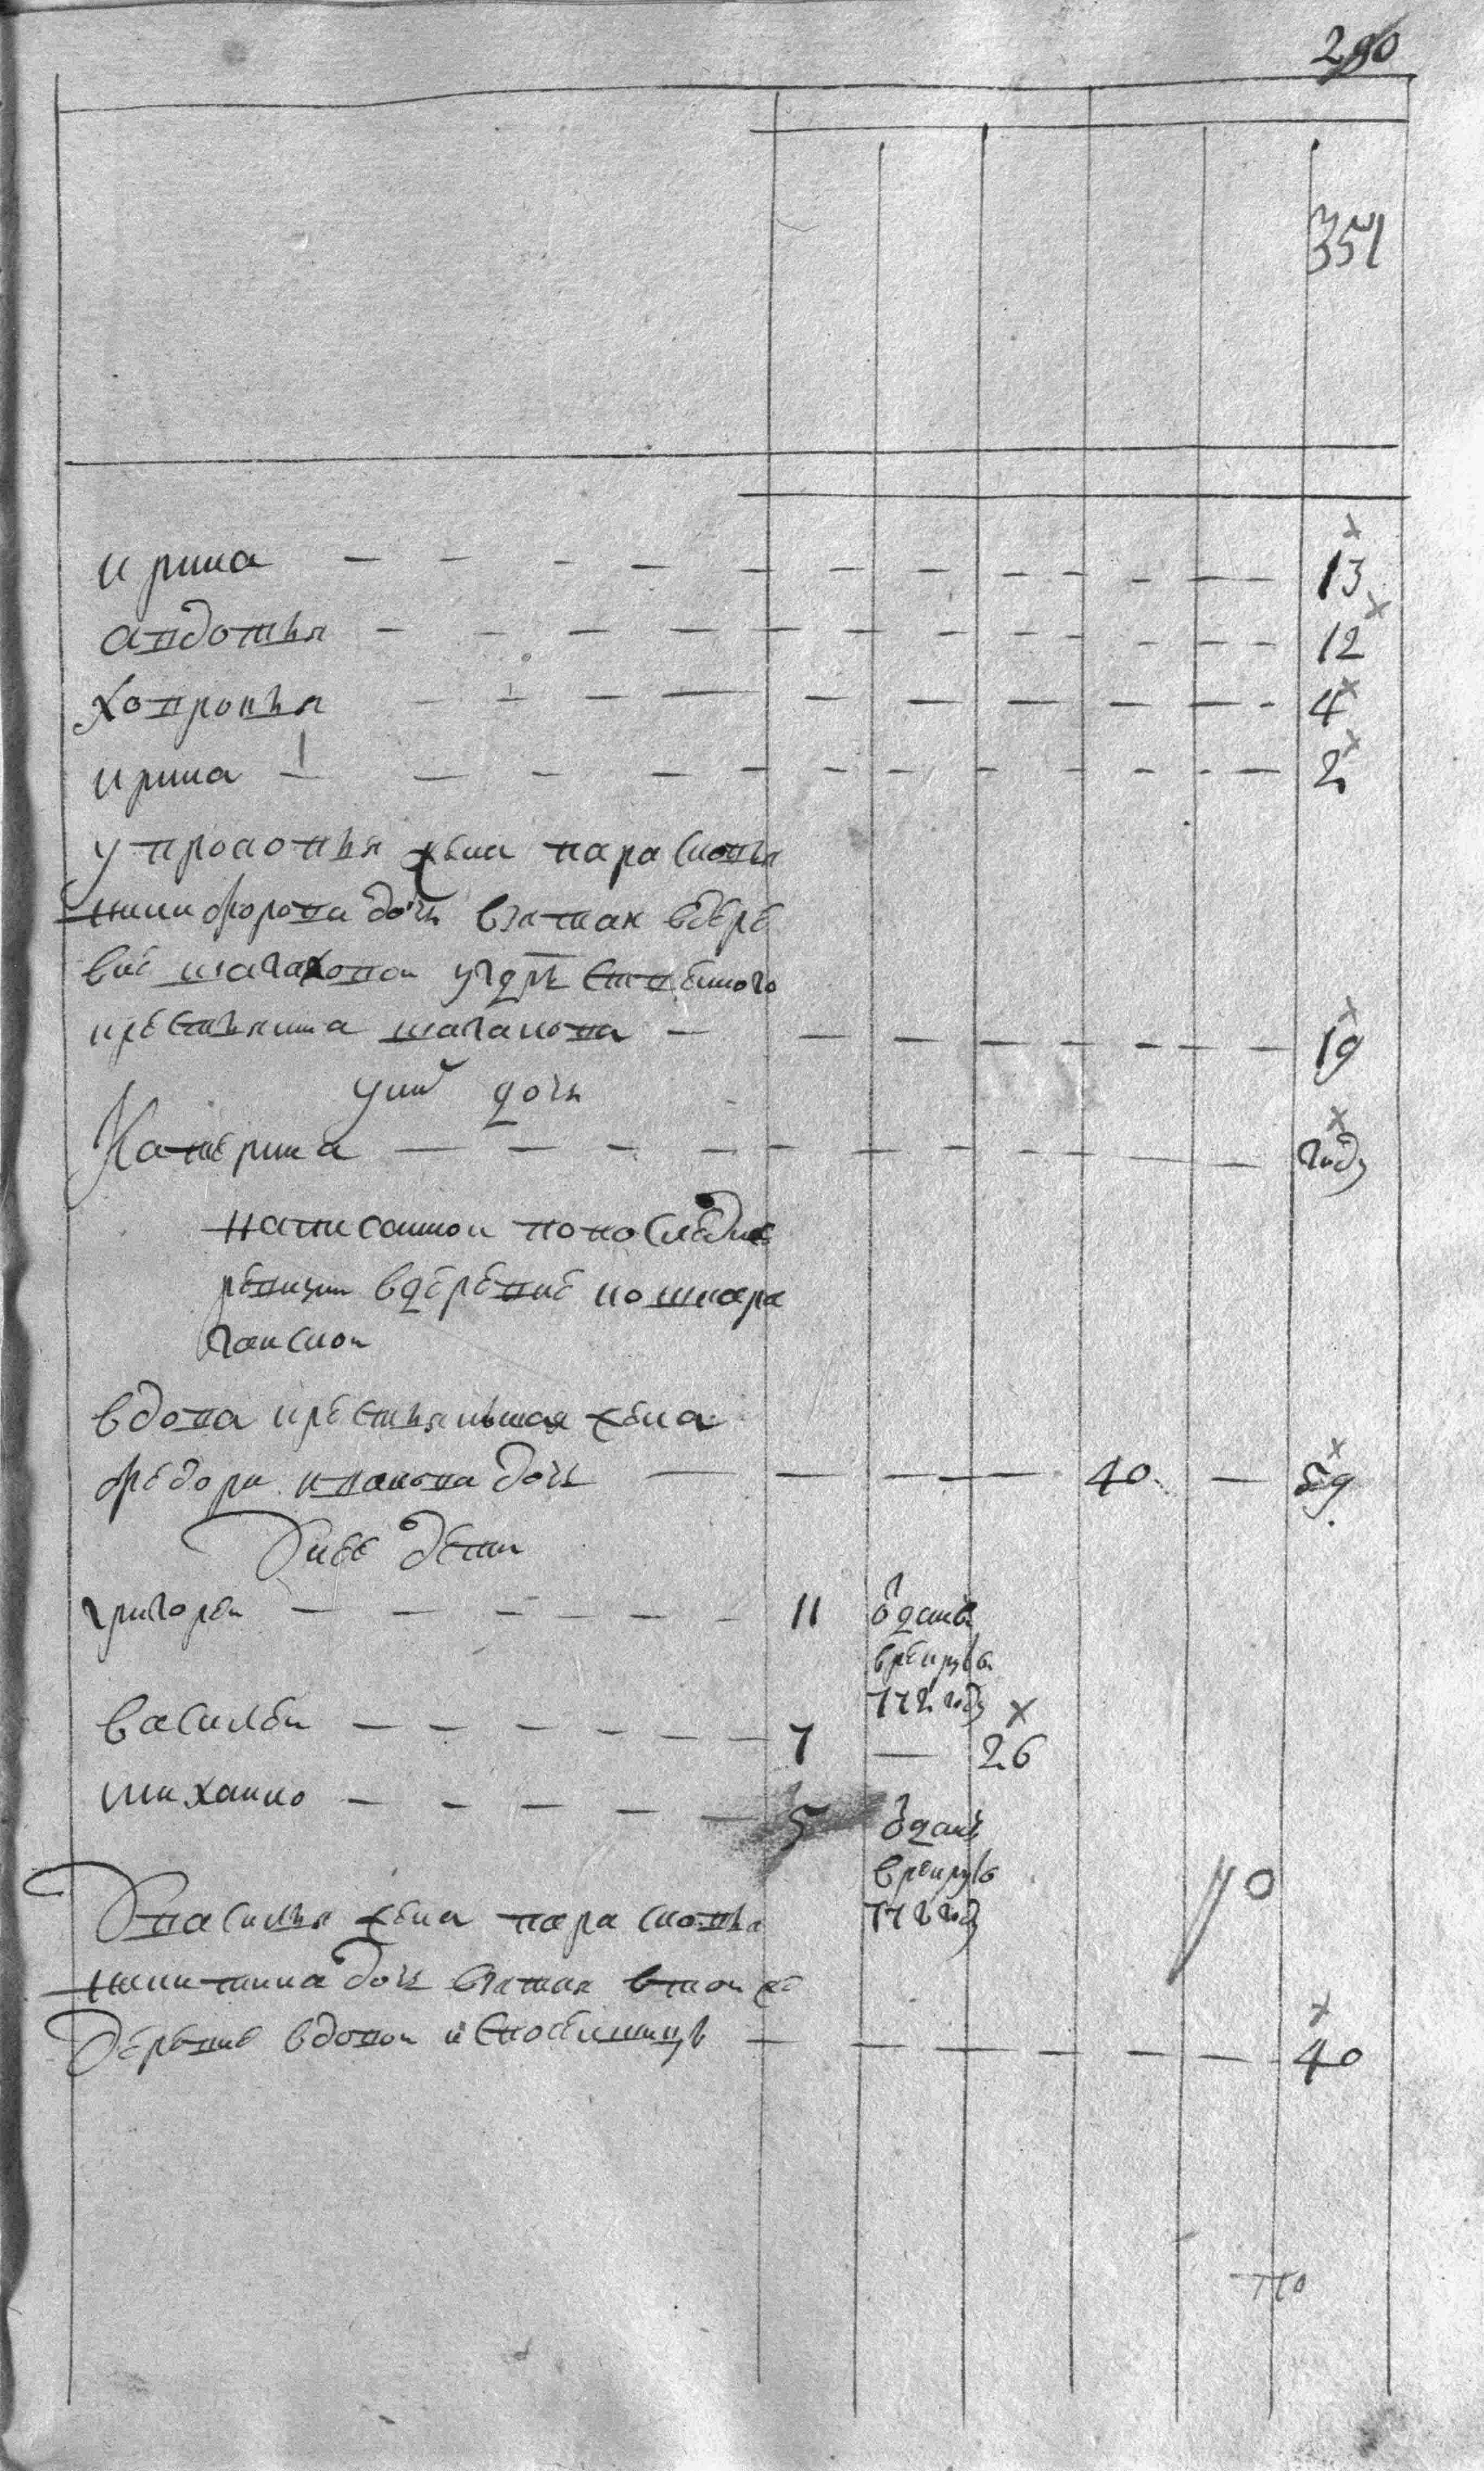 290
351
ирина — 13
авдотья — 12
ховронья — 4
ирина — 2
у прокопья жена парасковья
никифорова дочь взятая в дере
вне
крестьянина — 19
у них дочь
Катерина — году
написанной по последней
ревизии в деревне
вдова крестьянская жена
федора иванова дочь — 40 — 59
у нее дети
григорей — 11 отданъ
в рекруты
772 году
василей — 7 — 26
михайло — 5 отданъ
в рекруты
772 году
10
у василья жена парасковья
никитина дочь взятая в той же
деревне вдовой — 40